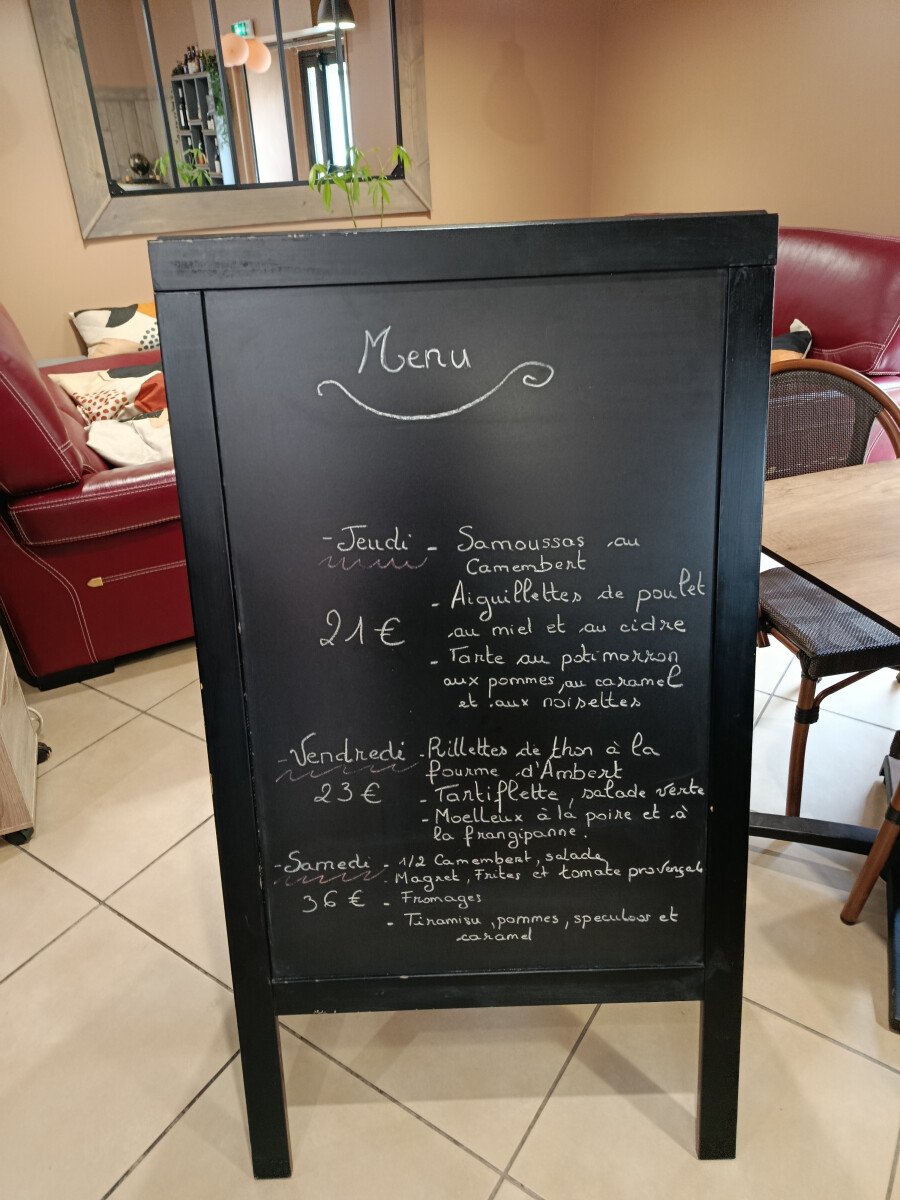 Menu
- Jeudi - Samoussas au
Camembert
- Aiguillettes de poulet
21€ au miel et au cidre
- Tarte au potimarron
aux pommes, au caramel
et aux noisettes
- Vendredi - Rillettes de thon à la
fourme d'Ambert
23€ - Tartiflette, salade verte
- Moelleux à la poire et à
la frangipanne.
- Samedi - 1/2 Camembert, salade
- Magret, Frites et tomate provençale
36€ - Fromages
- Tiramisu, pommes, speculoos et
caramel